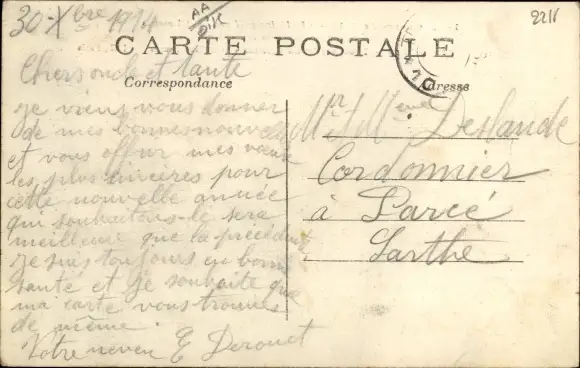 30-Xbre 1914
AA
2211
CARTE POSTALE
Correspondance
Adresse
Chers oncle et tante
je viens vous donner
de mes bonnes nouvelles
et vous offrir mes vœux
les plus sincères pour
cette nouvelle année
qui souhaitons-le sera
meilleure que la précédente
je suis toujours en bonne
santé et je souhaite que
ma carte vous trouves
de même.
Votre neveu E Derouet
Mr et Mme Deslande
Cordonnier
à Parcé
Sarthe